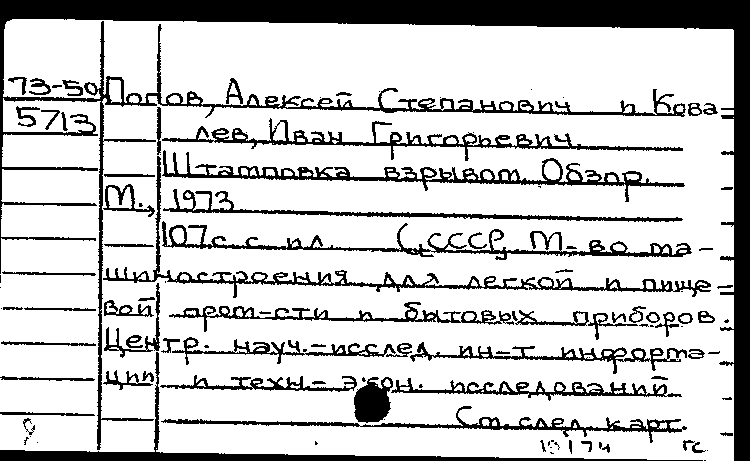 73-50 Попов, Алексей Степанович и Кова-
5713 лев, Иван Григорьевич.
Штамповка взрывом. Обзор.
М., 1973
107с. с ил. (СССР, М-во ма-
шиностроения для легкой и пище-
вой пром-сти и бытовых приборов.
Центр. науч.-исслед. ин-т информа-
ции и техн-экон. исследований
См. след. карт.
19174 гс